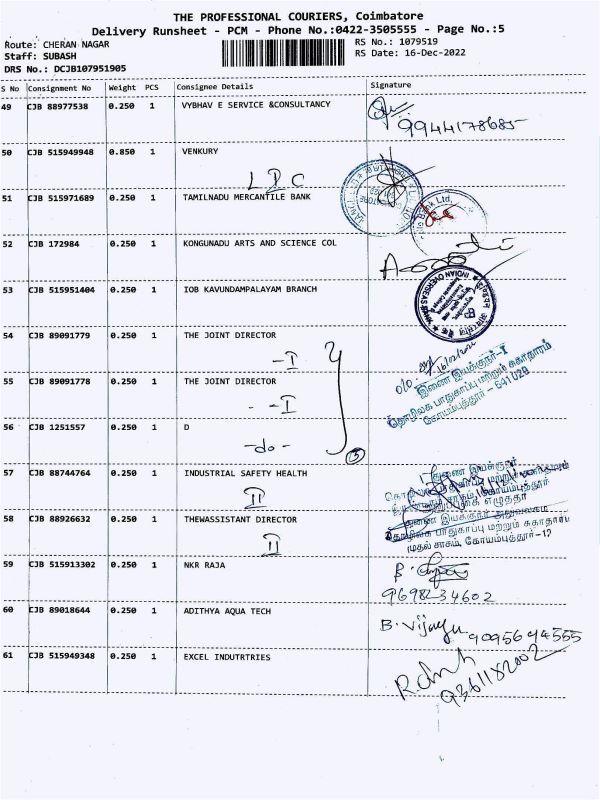 THE PROFESSIONAL COURIERS, Coimbatore
Delivery Runsheet - PCM - Phone No.:0422-3505555 - Page No.:5
Route: CHERAN NAGAR
RS No.: 1079519
Staff: SUBASH
RS Date: 16-Dec-2022
DRS No.: DCJB107951905
S No Consignment No Weight PCS Consignee Details Signature
49 CJB 88977538 0.250 1 VYBHAV E SERVICE &CONSULTANCY
9944178685
50 CJB 515949948 0.850 1 VENKURY
LDC
51 CJB 515971689 0.250 1 TAMILNADU MERCANTILE BANK
52 CJB 172984 0.250 1 KONGUNADU ARTS AND SCIENCE COL
53 CJB 515951404 0.250 1 IOB KAVUNDAMPALAYAM BRANCH
INDIAN OVERSEAS
54 CJB 89091779 0.250 1 THE JOINT DIRECTOR
-I
இணை இயக்குநர்-I
தொழிலக பாதுகாப்பு மற்றும் சுகாதாரம்
கோயம்புத்தூர் - 641 029
55 CJB 89091778 0.250 1 THE JOINT DIRECTOR
- -I
56 CJB 1251557 0.250 1 D
-do-
57 CJB 88744764 0.250 1 INDUSTRIAL SAFETY HEALTH
II
58 CJB 88926632 0.250 1 THEWASSISTANT DIRECTOR
II
தொழிலக பாதுகாப்பு மற்றும் சுகாதார
முதல் சரகம், கோயம்புத்தூர்-
59 CJB 515913302 0.250 1 NKR RAJA
9698234602
60 CJB 89018644 0.250 1 ADITHYA AQUA TECH
B. Vijaya 9095694555
61 CJB 515949348 0.250 1 EXCEL INDUTRTRIES
9361182002